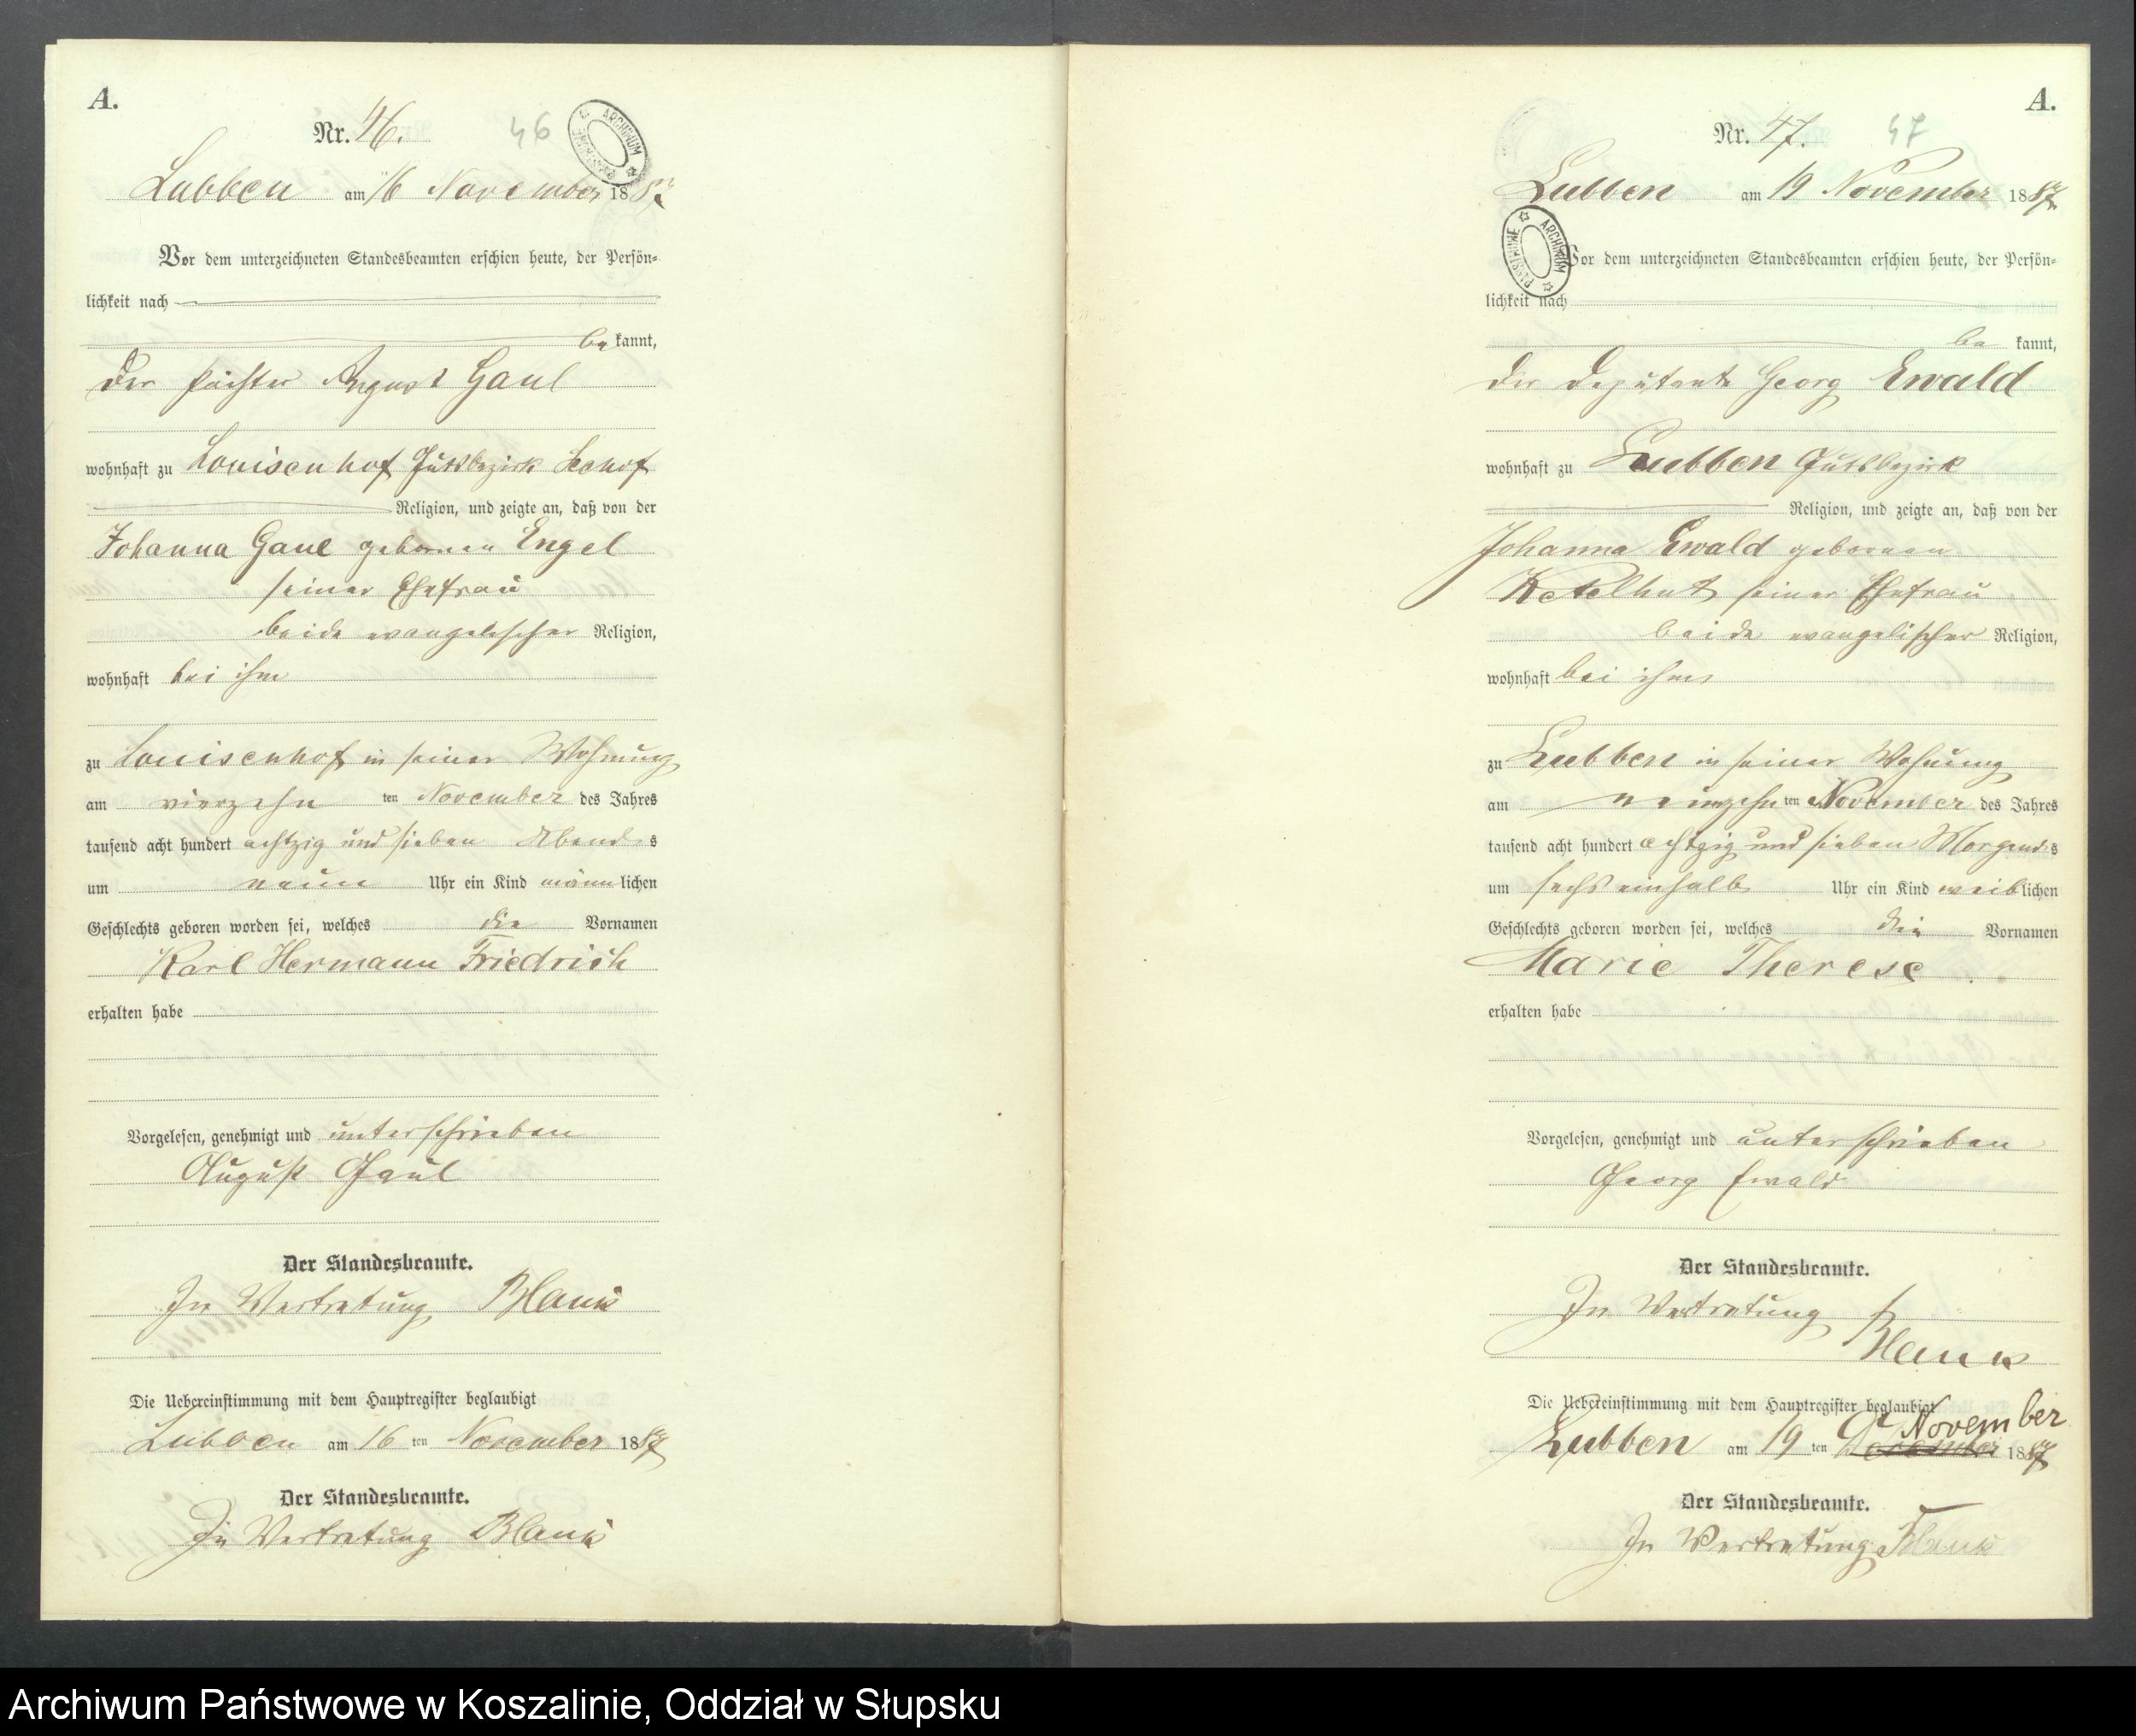 A.
Nr. 46.
46
ARCHIWUM PAŃSTWOWE
Lubben am 16 November 1887
Vor dem unterzeichneten Standesbeamten erschien heute, der Persön-
lichkeit nach
be kannt,
der Pächter August Gaul
wohnhaft zu Louisenhof Gutsbezirk
Religion, und zeigte an, daß von der
Johanna Gaul geborenen Engel
seiner Ehefrau
beide evangelischer Religion,
wohnhaft bei ihm
zu Louisenhof in seiner Wohnung
am vierzehn ten November des Jahres
tausend acht hundert achtzig und sieben Abends
um neun Uhr ein Kind männlichen
Geschlechts geboren worden sei, welches die Vornamen
Karl Hermann Friedrich
erhalten habe
Vorgelesen, genehmigt und unterschrieben
August Gaul
Der Standesbeamte.
In Vertretung Blank
Die Uebereinstimmung mit dem Hauptregister beglaubigt
Lubben am 16 ten November 1887
Der Standesbeamte.
In Vertretung Blank
A.
Nr. 47.
47
Lubben am 19 November 1887
ARCHIWUM PAŃSTWOWE
Vor dem unterzeichneten Standesbeamten erschien heute, der Persön-
lichkeit nach
be kannt,
der Deputant Georg Ewald
wohnhaft zu Lubben Gutsbezirk
Religion, und zeigte an, daß von der
Johanna Ewald geborenen
Ketelhut seiner Ehefrau
beide evangelischer Religion,
wohnhaft bei ihm
zu Lubben in seiner Wohnung
am neunzehn ten November des Jahres
tausend acht hundert achtzig und sieben Morgends
um sechs einhalb Uhr ein Kind weiblichen
Geschlechts geboren worden sei, welches die Vornamen
Marie Therese
erhalten habe
Vorgelesen, genehmigt und unterschrieben
Georg Ewald
Der Standesbeamte.
In Vertretung
Blank
Die Uebereinstimmung mit dem Hauptregister beglaubigt
November
Lubben am 19 ten 1887
Der Standesbeamte.
In Vertretung Blank
Archiwum Państwowe w Koszalinie, Oddział w Słupsku